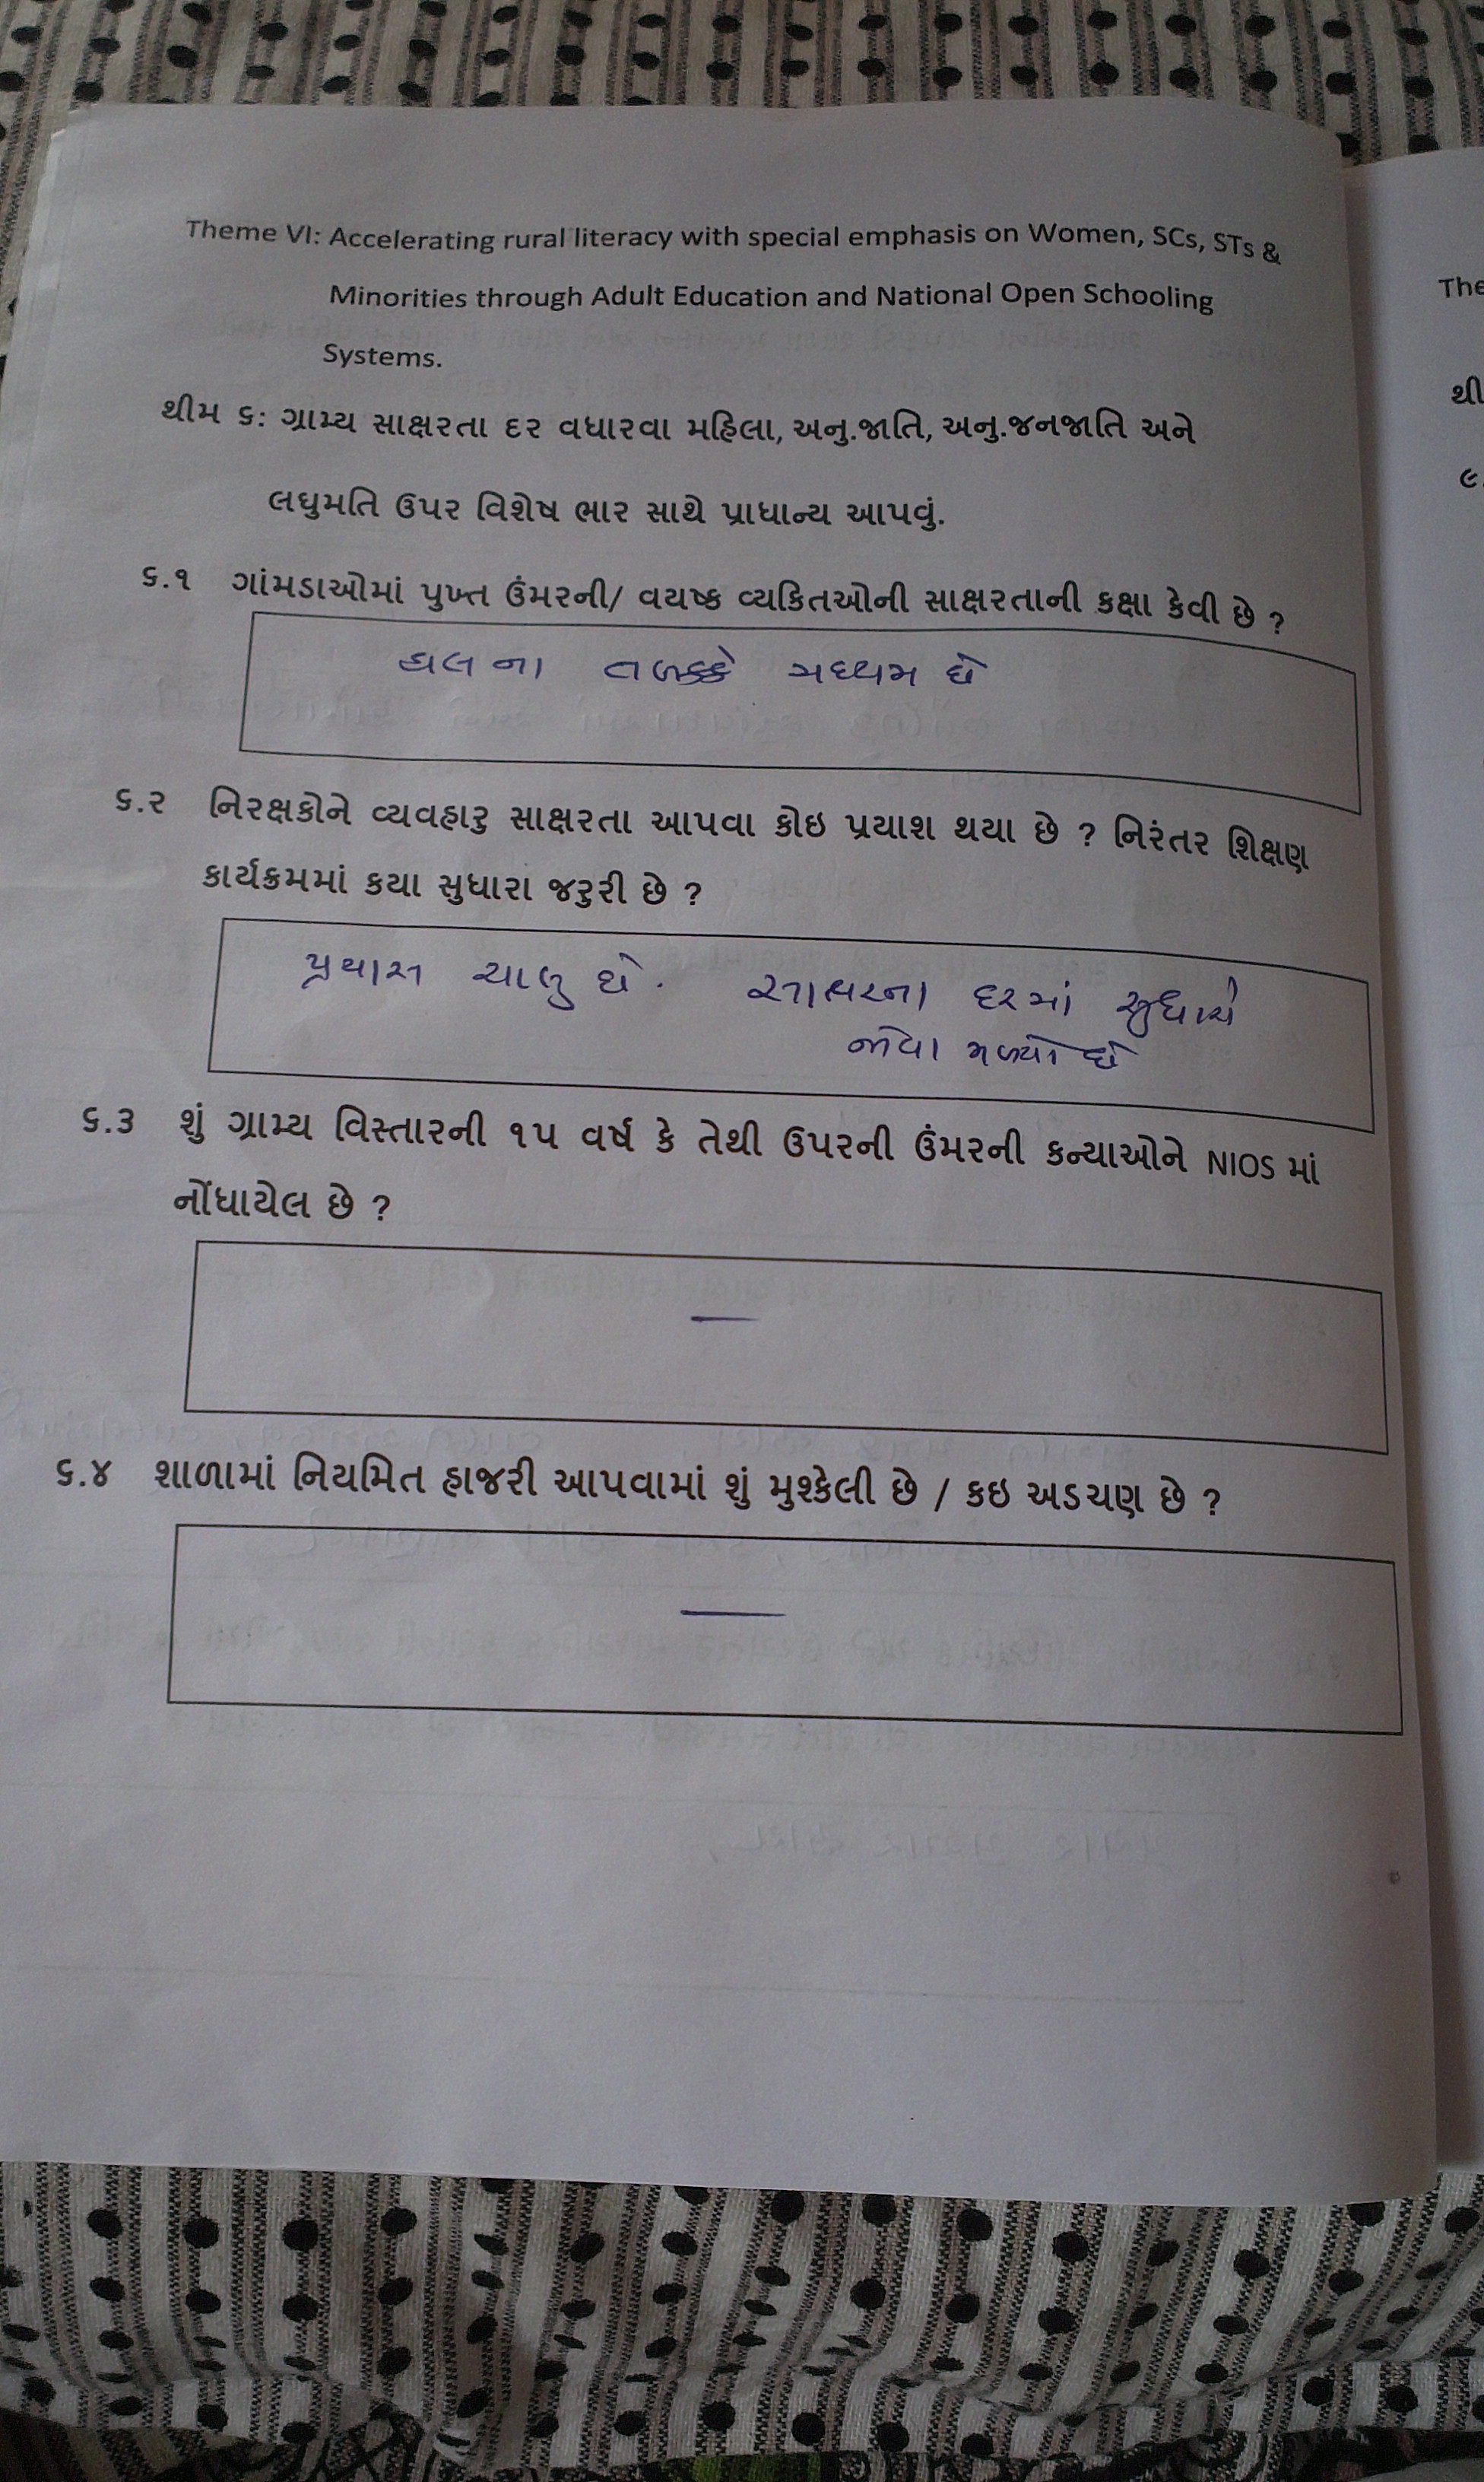 Theme VI: Accelerating rural literacy with special emphasis on Women, SCs, STs &
Minorities through Adult Education and National Open Schooling
Systems.
થીમ ૬: ગ્રામ્ય સાક્ષરતા દર વધારવા મહિલા, અનુ.જાતિ, અનુ.જનજાતિ અને
લઘુમતિ ઉપર વિશેષ ભાર સાથે પ્રાધાન્ય આપવું.
૬.૧ ગાંમડાઓમાં પુખ્ત ઉંમરની/ વયષ્ક વ્યકિતઓની સાક્ષરતાની કક્ષા કેવી છે ?
હાલ ના તબક્કે મધ્યમ છે
૬.૨ નિરક્ષકોને વ્યવહારુ સાક્ષરતા આપવા કોઇ પ્રયાશ થયા છે ? નિરંતર શિક્ષણ
કાર્યક્રમમાં કયા સુધારા જરુરી છે ?
પ્રયાસ ચાલુ છે. સાક્ષરતા દરમાં સુધારો
જોવા મળ્યો છે
૬.૩ શું ગ્રામ્ય વિસ્તારની ૧૫ વર્ષ કે તેથી ઉપરની ઉંમરની કન્યાઓને NIOS માં
નોંધાયેલ છે ?
—
૬.૪ શાળામાં નિયમિત હાજરી આપવામાં શું મુશ્કેલી છે / કઇ અડચણ છે ?
—
The
થી
૯.